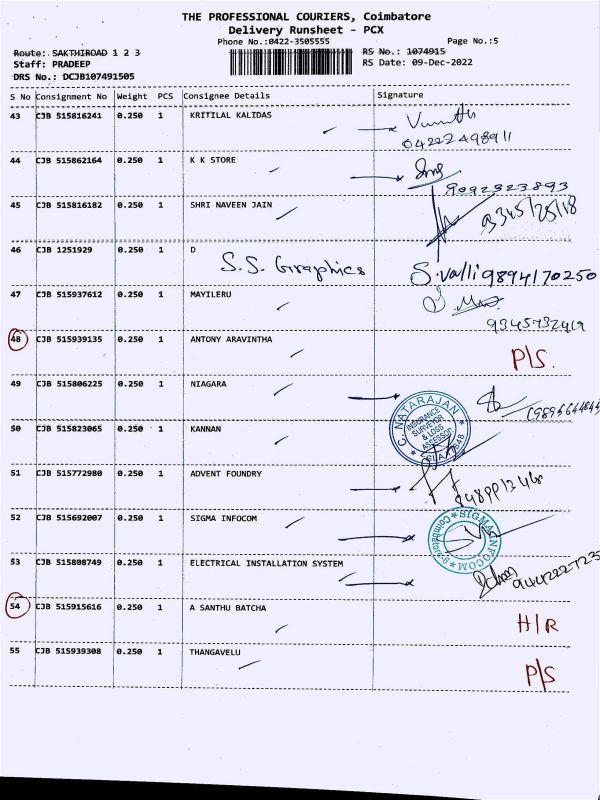 THE PROFESSIONAL COURIERS, Coimbatore
Delivery Runsheet - PCX
Phone No.:0422-3505555 Page No.:5
Route: SAKTHIROAD 1 2 3 RS No.: 1074915
Staff: PRADEEP RS Date: 09-Dec-2022
DRS No.: DCJB107491505
S No Consignment No Weight PCS Consignee Details Signature
43 CJB 515816241 0.250 1 KRITILAL KALIDAS
04222498911
44 CJB 515862164 0.250 1 K K STORE
9092323893
45 CJB 515816182 0.250 1 SHRI NAVEEN JAIN
46 CJB 1251929 0.250 1 D
S.S. Graphics S.valli 9894170250
47 CJB 515937612 0.250 1 MAYILERU
48 CJB 515939135 0.250 1 ANTONY ARAVINTHA
P/S.
49 CJB 515806225 0.250 1 NIAGARA
C. NATARAJAN
INSURANCE
SURVEYOR
& LOSS
ASSESSOR
50 CJB 515823065 0.250 1 KANNAN
51 CJB 515772980 0.250 1 ADVENT FOUNDRY
52 CJB 515692007 0.250 1 SIGMA INFOCOM
SIGMA INFOCOM
Coimbatore-9
53 CJB 515808749 0.250 1 ELECTRICAL INSTALLATION SYSTEM
54 CJB 515915616 0.250 1 A SANTHU BATCHA
H/R
55 CJB 515939308 0.250 1 THANGAVELU
P/S